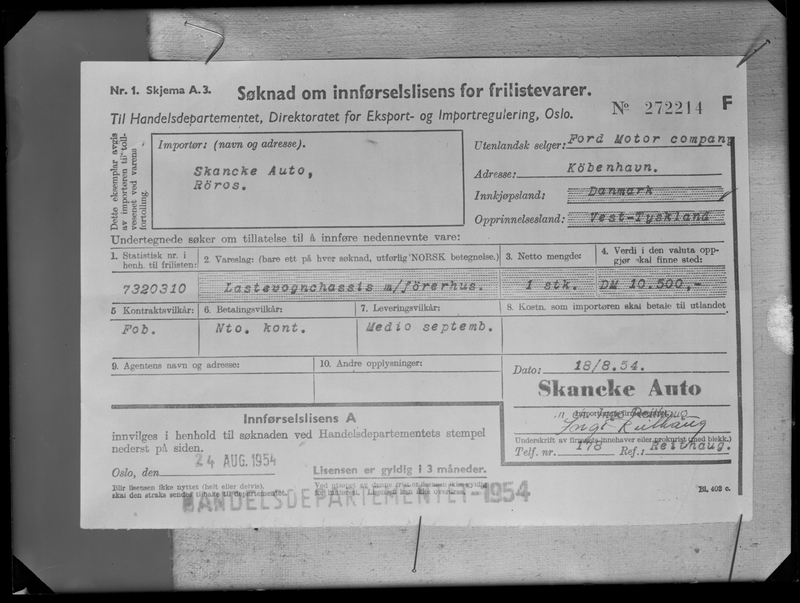 Nr. 1. Skjema A. 3. Søknad om innførselslisens for frilistevarer.
Til Handelsdepartementet, Direktoratet for Eksport- og Importregulering, Oslo. Nº 272214 F
Dette eksemplar avgis
av importøren til toll-
vesenet ved varens
fortolling.
Importør: (navn og adresse).
Skancke Auto,
Röros.
Utenlandsk selger: Ford Motor company
Adresse: Köbenhavn.
Innkjøpsland: Danmark
Opprinnelsesland: Vest-Tyskland
Undertegnede søker om tillatelse til å innføre nedennevnte vare:
1. Statistisk nr. i
henh. til frilisten:
2. Vareslag: (bare ett på hver søknad, utførlig NORSK betegnelse.)
3. Netto mengde:
4. Verdi i den valuta opp-
gjør skal finne sted:
7320310 Lastevognchassis m/förerhus. 1 stk. DM 10.500,-
5 Kontraktsvilkår: 6. Betalingsvilkår: 7. Leveringsvilkår: 8. Kostn. som importøren skal betale til utlandet
Fob. Nto. kont. Medio septemb.
9. Agentens navn og adresse: 10. Andre opplysninger:
Dato: 18/8.54.
Skancke Auto
Inge Reithaug
Underskrift av firmaets innehaver eller prokurist (med blekk.)
Telf. nr. 178 Ref.: Reithaug.
Innførselslisens A
innvilges i henhold til søknaden ved Handelsdepartementets stempel
nederst på siden.
Oslo, den 24 AUG. 1954
Lisensen er gyldig i 3 måneder.
Blir lisensen ikke nyttet (helt eller delvis),
skal den straks sendes tilbake til departementet.
HANDELSDEPARTEMENTET-1954
Bl. 402 c.